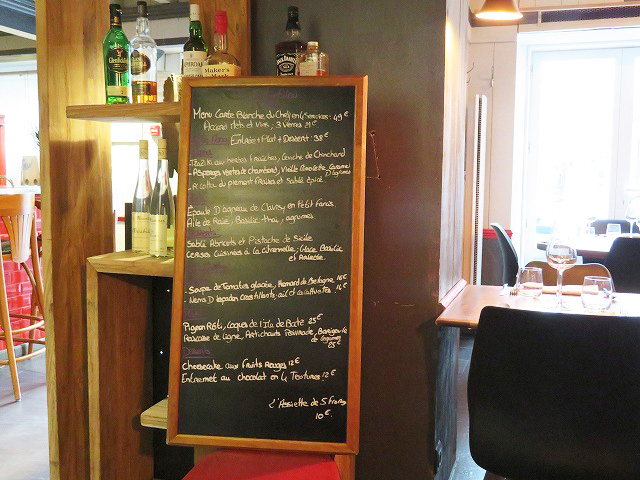 Glenfiddich
Maker's
JACK DANIEL'S
Menu Carte Blanche du Chef en 4 Services: 49€
Accord Mets et vins, 3 verres 21€
Entrée + Plat + Dessert: 38€
Tzaziki aux herbes fraîches,
Asperges vertes de chambord, Vieille Caramel
D'agrumes
Ricotta du piemont fraises et sablé épicé
Épaule D'agneau de en Petit Farcis
Aile de Raie, Basilic thaï, agrumes
Sablé Abricots et Pistache de Sicile
Cerises Cuisinées à la Citronnelle, Glace Basilic
et
Soupe de Tomates glacée, Homard de Bretagne 16€
Nems D' croustillants, ail et 14€
Pigeon Rôti, Coques de l'Ile de Batz 25€
Rascasse de Ligne, Artichauts Poivrade, Barigoule
de légumes
25€
Cheesecake aux fruits Rouges 12€
Entremet au chocolat en 4 Textures 12€
L'Assiette de 5 From
10€